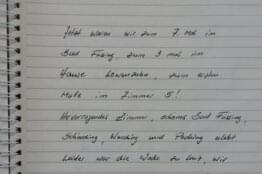 Jetzt waren wir zum 7. Mal im
Bad Füssing, zum 3 mal im
Hause Löwenzahn, zum ersten
Male im Zimmer 5!
Hervorragendes Zimmer, schönes Bad Füssing,
Schärding, und Passau erlebt
leider war die Woche zu kurz, wir